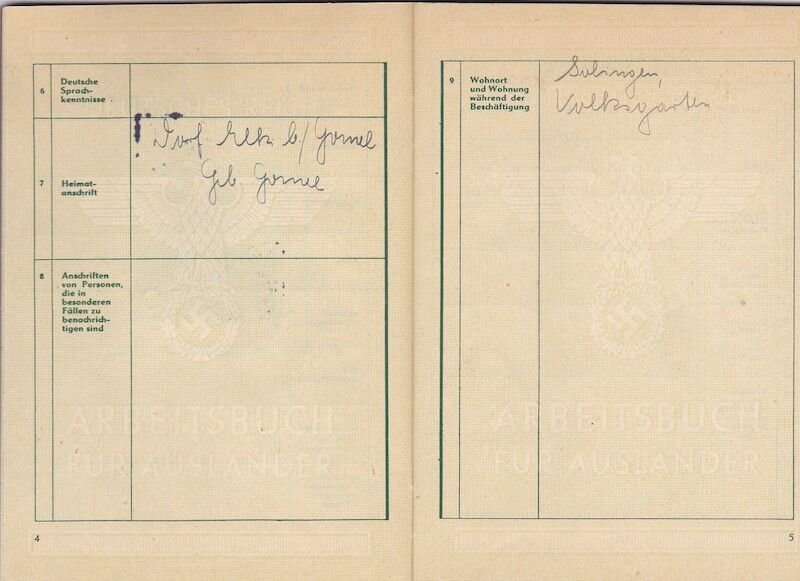 6
Deutsche
Sprach-
kenntnisse
7
Heimat-
anschrift
Dorf b./Gomel
Geb. Gomel
8
Anschriften
von Personen,
die in
besonderen
Fällen zu
benachrich-
tigen sind
ARBEITSBUCH
FÜR AUSLÄNDER
4
9
Wohnort
und Wohnung
während der
Beschäftigung
Solingen,
Volksgarten
ARBEITSBUCH
FÜR AUSLÄNDER
5